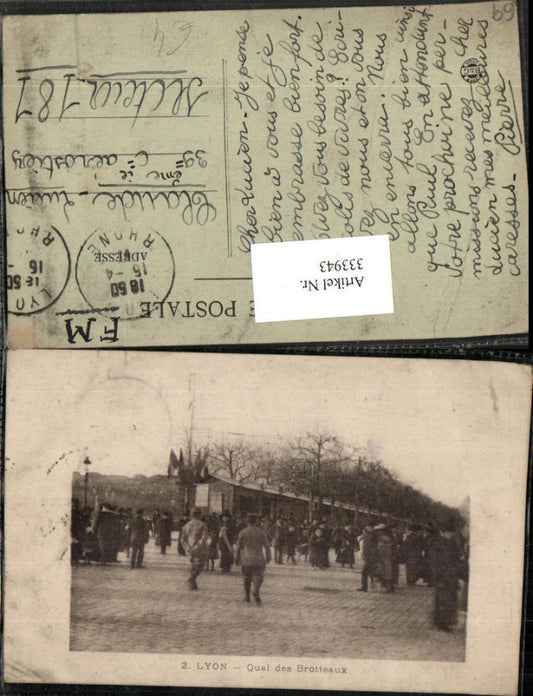 69
Cher Lucien - Je pense
bien à vous et je
embrasse bien fort.
Avez vous besoin de
colis de vivres? Ecri-
vez nous et on vous
en enverra. Nous
allons tous bien ainsi
que Paul. En attendant
votre prochaine per-
missions recevez cher
Lucien mes meilleures
caresses.
Pierre
F M
E POSTALE
ADRESSE
Claude Lucien
39e Cie aérostiers
Secteur 181
LYON
RHONE
18 50
15 -4
Artikel Nr.
333943
2. LYON — Quai des Brotteaux